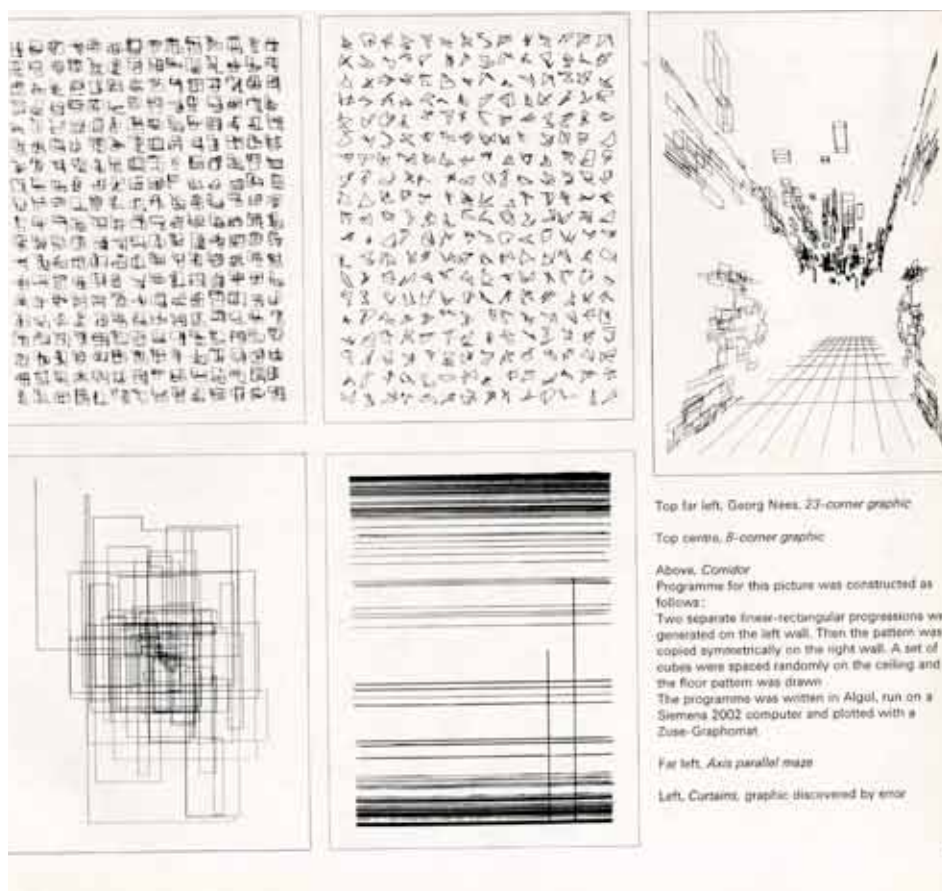 Top far left, Georg Nees, 23-corner graphic
Top centre, 8-corner graphic
Above, Corridor
Programme for this picture was constructed as
follows:
Two separate linear-rectangular progressions
generated on the left wall. Then the pattern was
copied symmetrically on the right wall. A set of
cubes were spaced randomly on the ceiling and
the floor pattern was drawn
The programme was written in Algol, run on a
Siemens 2002 computer and plotted with a
Zuse-Graphomat
Far left, Axis parallel maze
Left, Curtains, graphic discovered by error